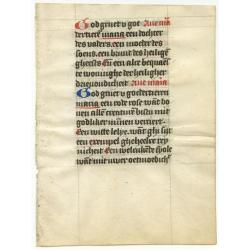 God gruet v god Aue ma
dertiere maria een dochter
des vaders. een moeder des
soens. een bruut des heilighē
gheests Eñ een aller bequaē
te woninghe der heiligher
drieuoudicheit Aue maria
God gruet v goedertieren
maria een rode rose wāt bo
uen alle creaturē bistu mit
godliker miñen verciert.
Een witte lelye. wāt ghi sijt
een exempel gheheelre rey
nicheit Een welrukēde viole
wāt mit uwer oetmoedich